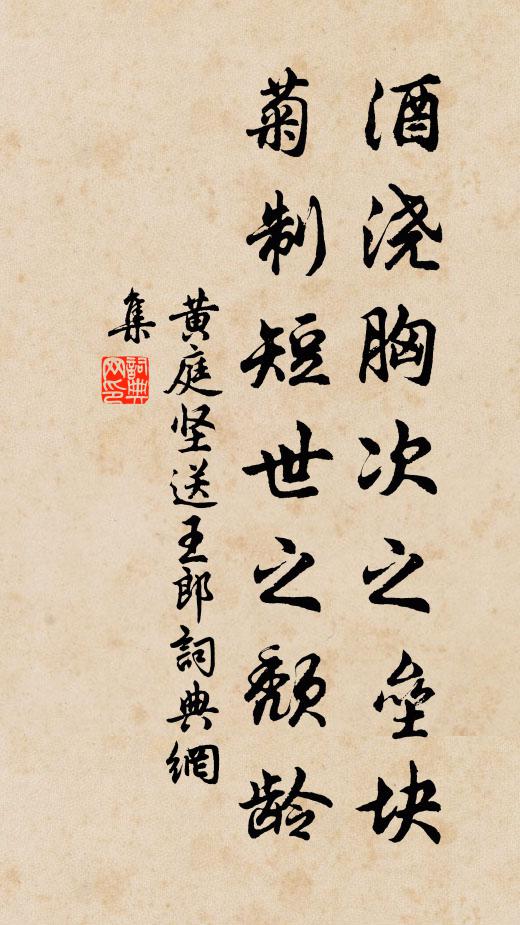 酒浇胸次之垒块
菊制短世之颓龄
黄庭坚送王郎詞典網
集
詞典网印